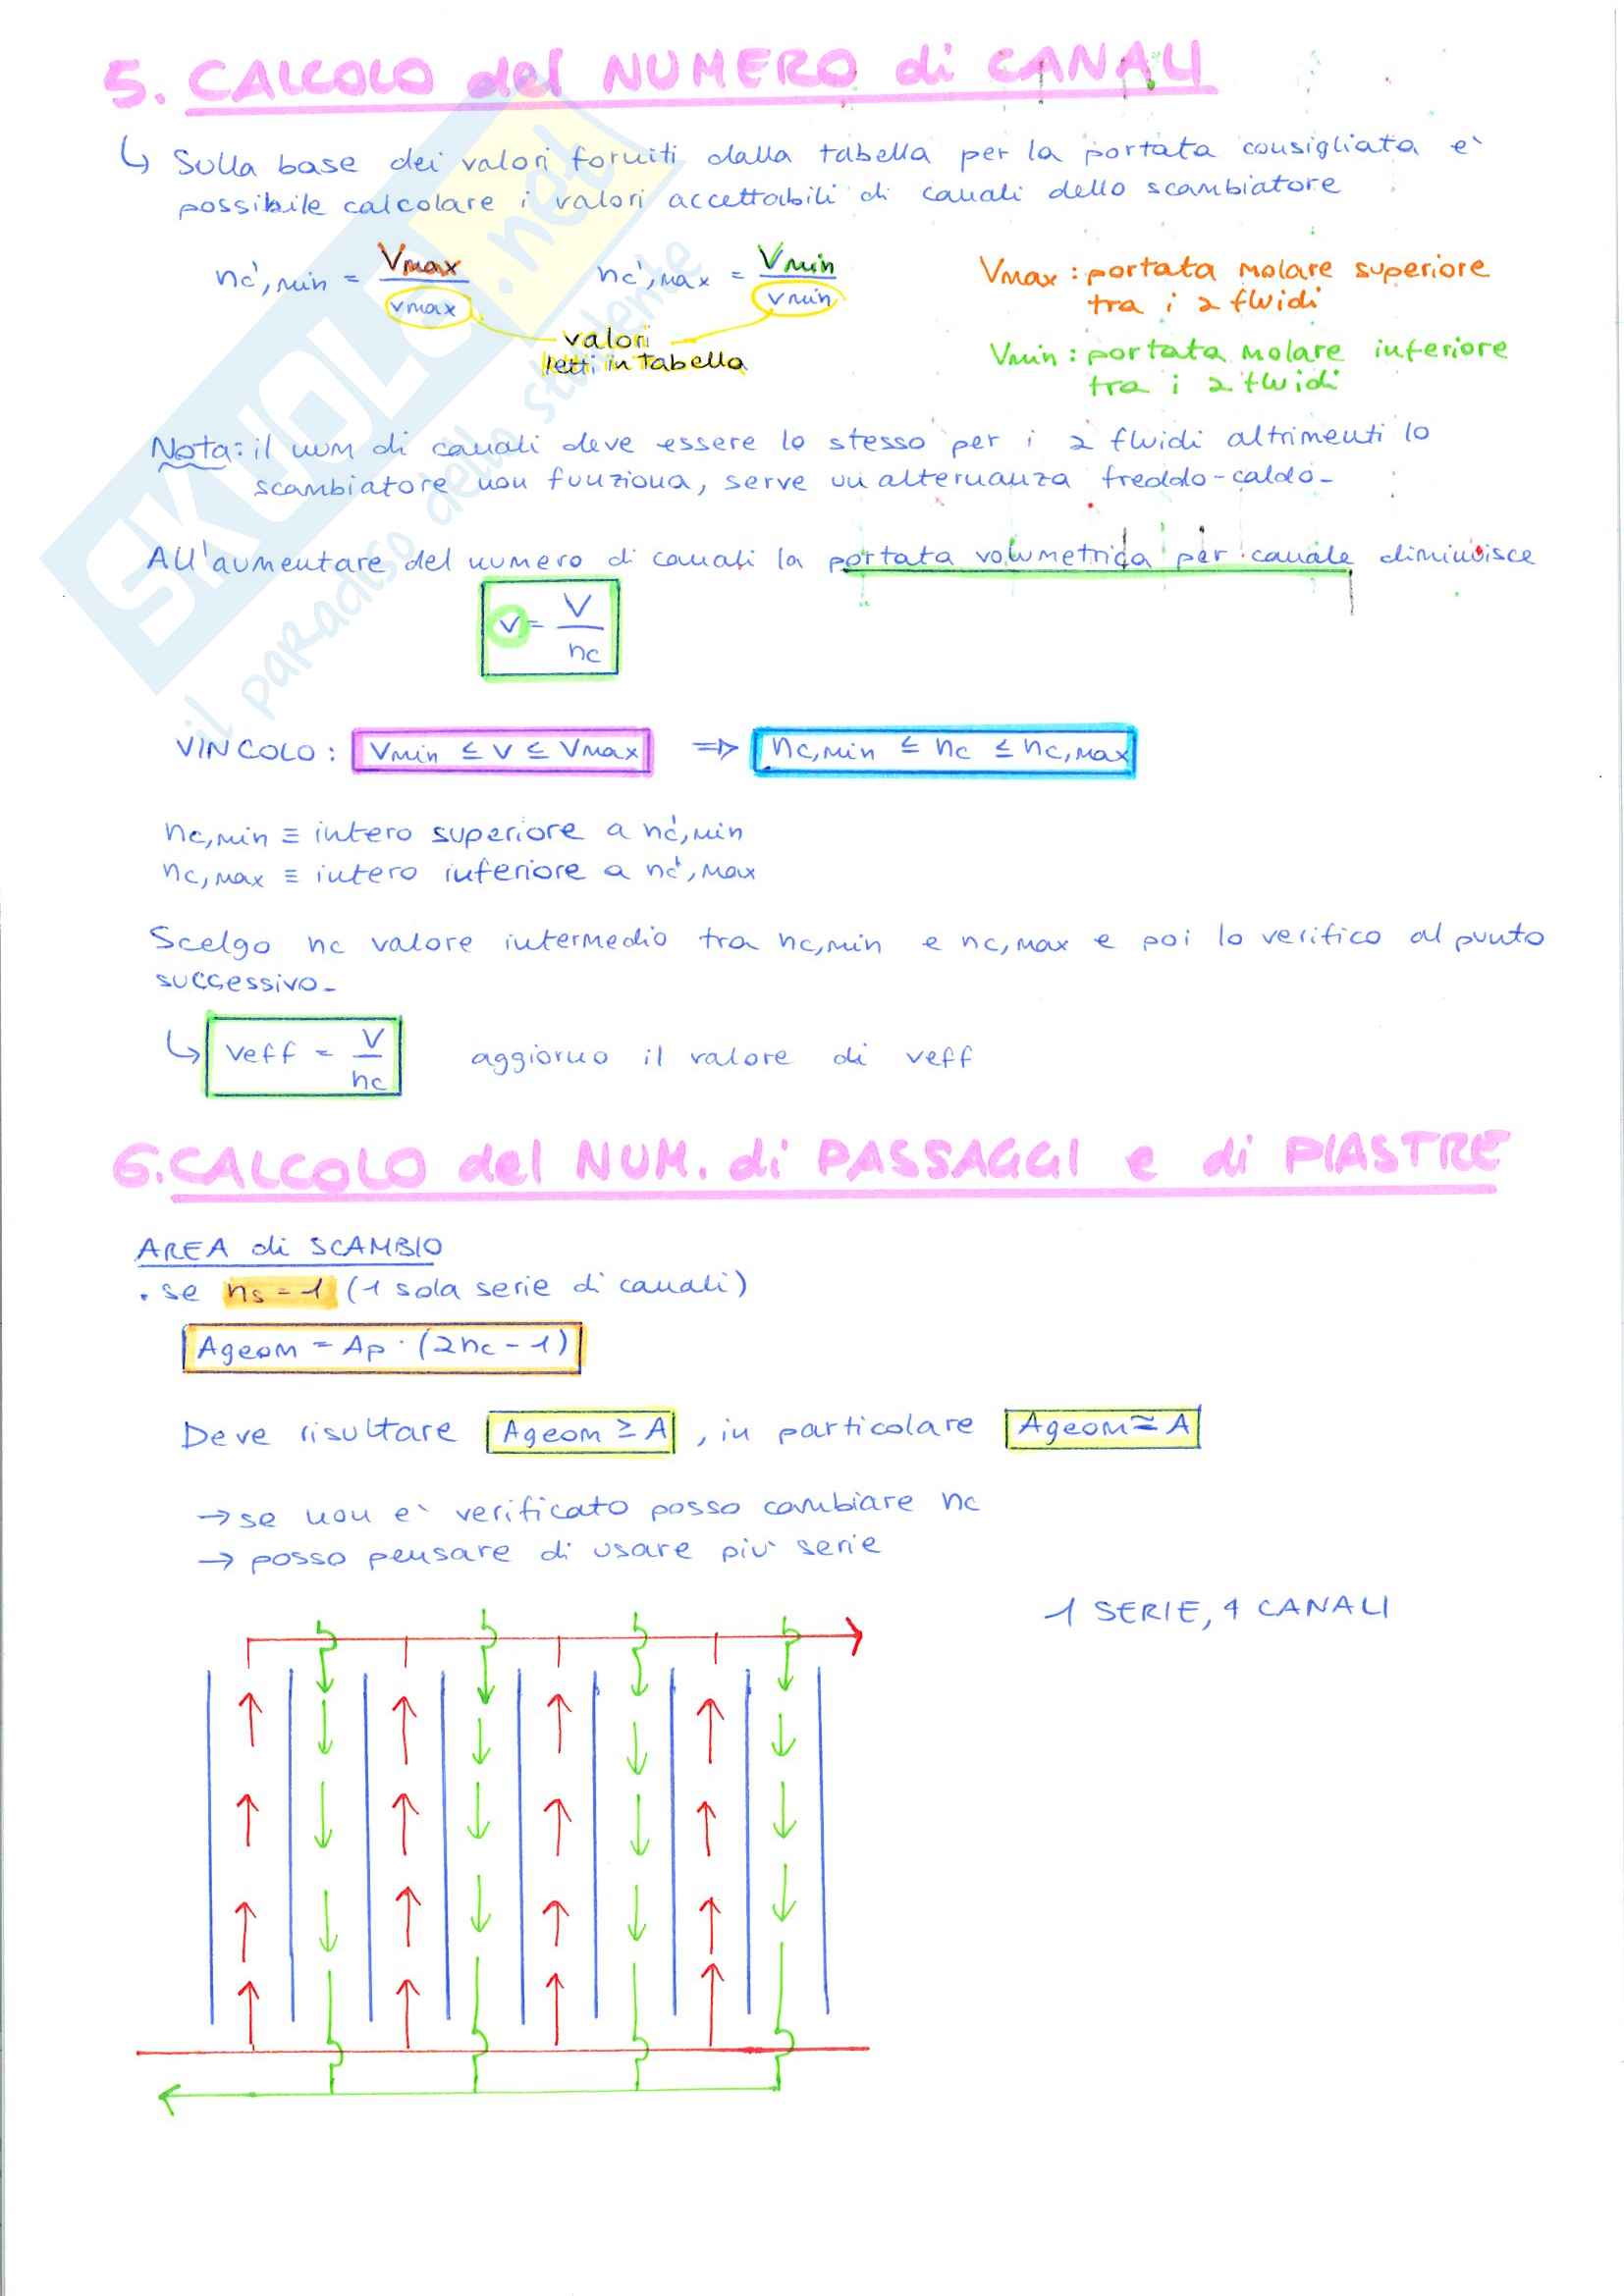 5. CALCOLO del NUMERO di CANALI
↳ Sulla base dei valori forniti dalla tabella per la portata consigliata e`
possibile calcolare i valori accettabili di canali dello scambiatore
nc',min = Vmax / vmax nc',max = Vmin / vmin
valori
letti in tabella
Vmax : portata molare superiore
tra i 2 fluidi
Vmin : portata molare inferiore
tra i 2 fluidi
Nota: il num di canali deve essere lo stesso per i 2 fluidi altrimenti lo
scambiatore non funziona, serve un alternanza freddo-caldo-
All'aumentare del numero di canali la portata volumetrica per canale diminuisce
v = V / nc
VINCOLO : Vmin ≤ v ≤ Vmax ⇒ nc,min ≤ nc ≤ nc,max
nc,min ≡ intero superiore a nc',min
nc,max ≡ intero inferiore a nc',max
Scelgo nc valore intermedio tra nc,min e nc,max e poi lo verifico al punto
successivo-
↳ veff = V / nc aggiorno il valore di veff
6. CALCOLO del NUM. di PASSAGGI e di PIASTRE
AREA di SCAMBIO
. se ns = 1 (1 sola serie di canali)
Ageom = Ap · (2nc - 1)
Deve risultare Ageom ≥ A , in particolare Ageom ≃ A
→ se non e` verificato posso cambiare nc
→ posso pensare di usare piu` serie
1 SERIE, 4 CANALI
SKUOLA.net
il paradiso dello studente